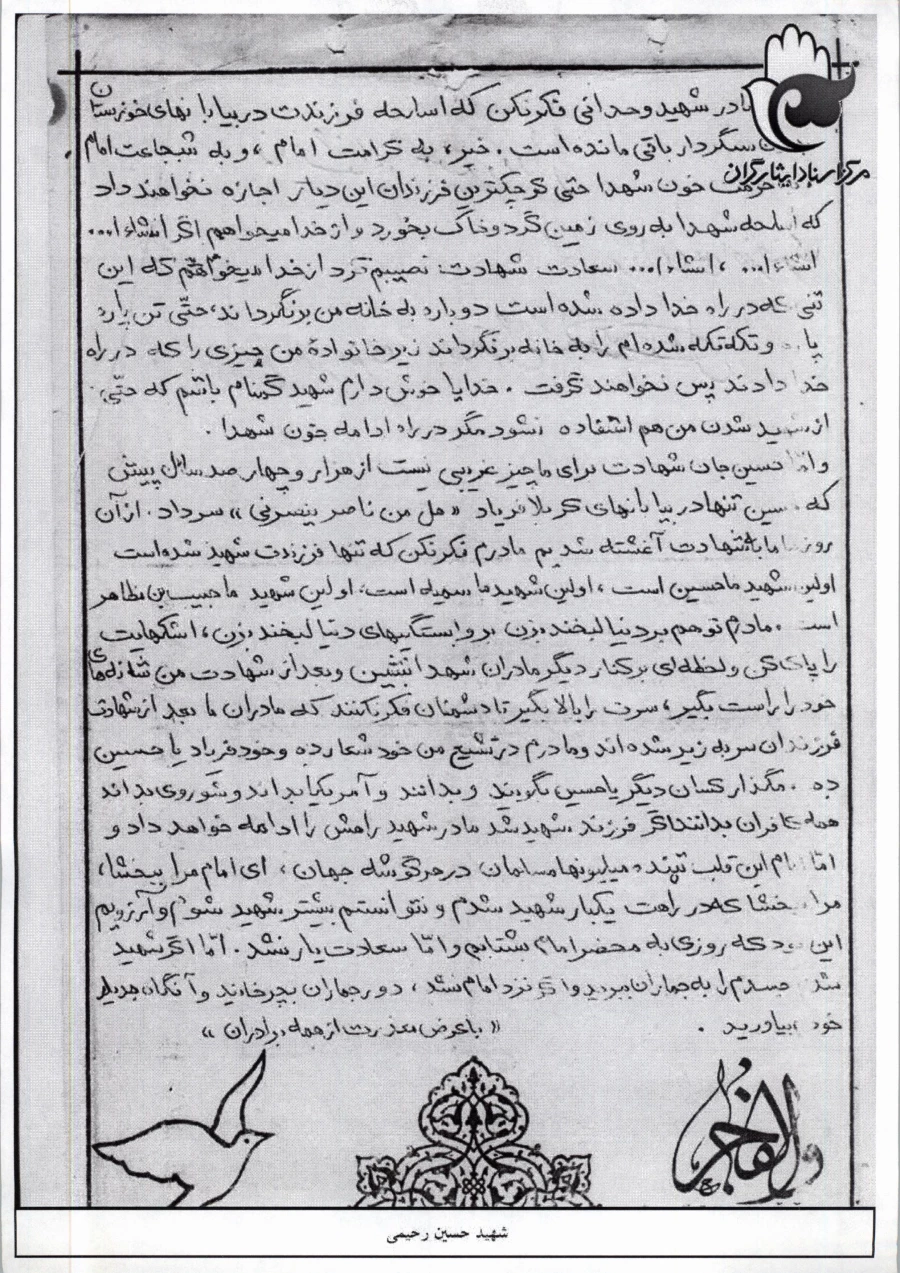 مادر شهید وحدانی فکر نکن که اسلحه فرزندت در بیابانهای خوزستان
سنگردار باقی مانده است . خیر ، به کرامت امام ، و به شجاعت امام
مرکز اسناد ایثارگران
حرمت خون شهدا حتی کوچکترین فرزندان این دیار اجازه نخواهند داد
که اسلحه شهدا به روی زمین گرد و خاک بخورد و از خدا میخواهم اگر انشاءا...
انشاءا... ، انشاءا... سعادت شهادت نصیبم کرد از خدا میخواهم که این
تنی که در راه خدا داده شده است دوباره به خانه من برنگرداند ، حتّی تن پاره
پاره و تکه تکه شده ام را به خانه برنگرداند زیرا خانوادهٔ من چیزی را که در راه
خدا دادند پس نخواهند گرفت . خدایا خوش دارم شهید گمنام باشم که حتّی
از شهید شدن من هم استفاده نشود مگر در راه ادامه خون شهدا .
و امّا حسین جان شهادت برای ما چیز غریبی نیست از هزار و چهار صد سال پیش
که حسین تنها در بیابانهای کربلا فریاد « هل من ناصر ینصرنی » سر داد . از آن
روز ما با شهادت آغشته شدیم مادرم فکر نکن که تنها فرزندت شهید شده است
اولین شهید ما حسین است ، اولین شهید ما سمیه است ، اولین شهید ما حبیب بن مظاهر
است . مادرم تو هم بر دنیا لبخند بزن بر وابستگیهای دنیا لبخند بزن ، اشکهایت
را پاک کن و لحظه ای بر کنار دیگر مادران شهدا بنشین و بعد از شهادت من شانه های
خود را راست بگیر ، سرت را بالا بگیر تا دشمنان فکر نکنند که مادران ما بعد از شهادت
فرزندان سر به زیر شده اند و مادرم در تشیع من خود شعار ده و خود فریاد یا حسین
ده . مگذار کسان دیگر یا حسین بگویند و بدانند و آمریکا بداند و شوروی بداند
همه کافران بدانند اگر فرزند شهید شد مادر شهید راهش را ادامه خواهد داد و
امّا امام این قلب تپنده میلیونها مسلمان در هر گوشه جهان ، ای امام مرا ببخشا ،
مرا ببخشا که در راهت یکبار شهید شدم و نتوانستم بیشتر شهید شوم و آرزویم
این بود که روزی به محضر امام بشتابم و امّا سعادت یار نشد . امّا اگر شهید
شدم جسدم را به جماران ببرید و اگر نزد امام نشد ، دور جماران بچرخانید و آنگاه
خود بیاورید .
« با عرض معذرت از همه برادران »
والفجر
شهید حسین رحیمی